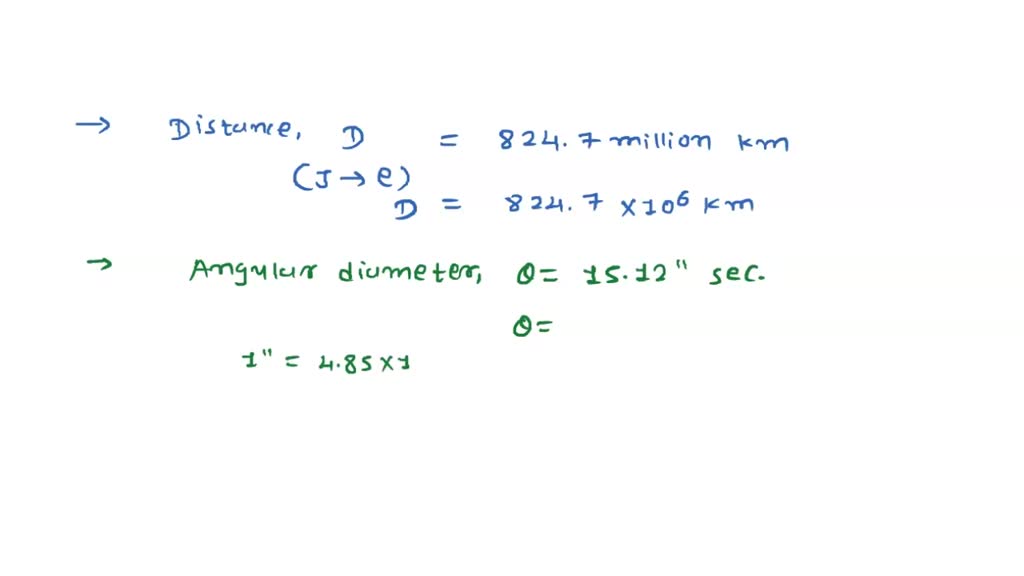 → Distance, D = 824.7 million km
(J → e)
D = 824.7 × 10⁶ km
→ Angular diameter, θ = 15.12" sec.
θ =
1" = 4.85 × 1